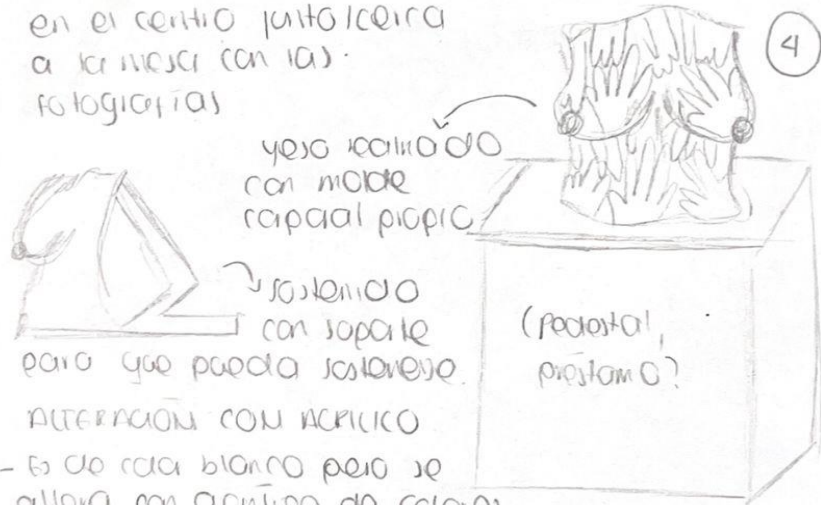 en el centro junto/cerca
a la mesa con las
fotografías
4
yeso realizado
con molde
corporal propio
sostenido
con soporte
para que pueda sostenerse.
(pedestal,
préstamo?
ALTERACIÓN CON ACRÍLICO
- Es de color blanco pero se
altera con acrílico de colores